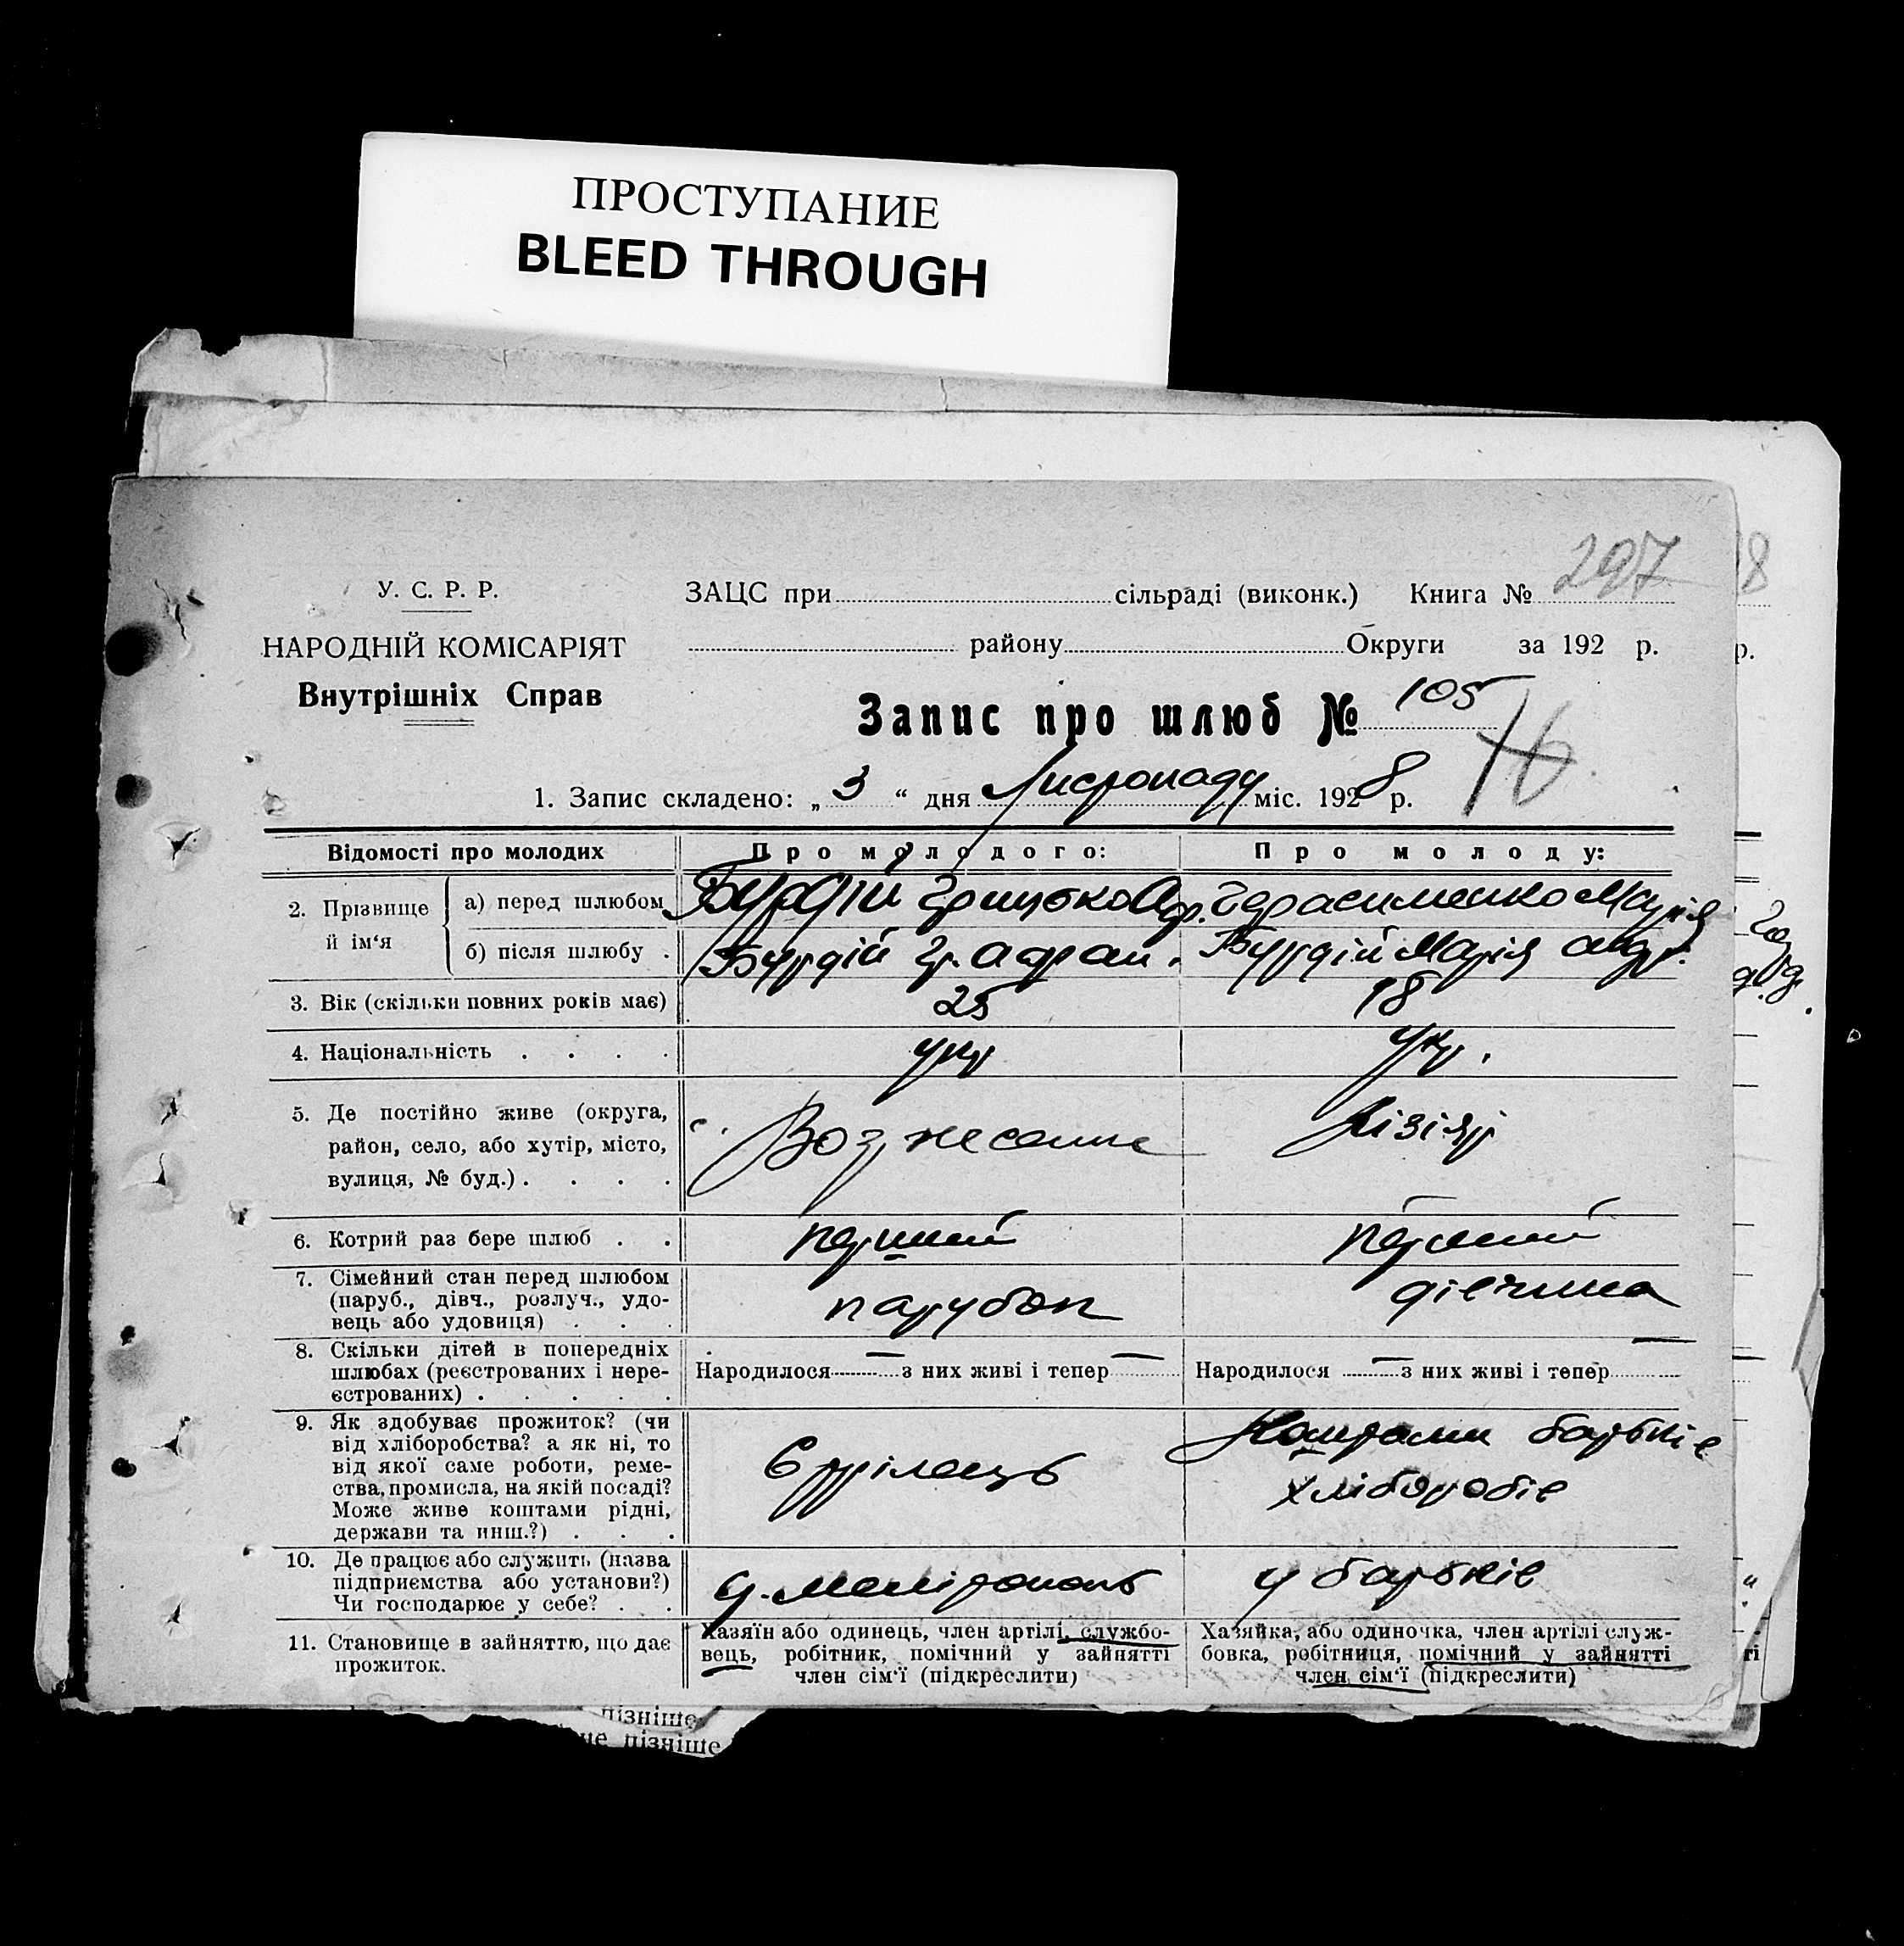 ПРОСТУПАНИЕ
BLEED THROUGH
297
У. С. Р. Р.
ЗАЦС при сільраді (виконк.) Книга №
НАРОДНІЙ КОМІСАРІЯТ
району Округи за 192 р.
Внутрішніх Справ
Запис про шлюб № 105
1. Запис складено: „ 3 “ дня Листопаду міс. 1928 р.
Відомості про молодих
Про молодого:
Про молоду:
2. Прізвище й ім‘я
а) перед шлюбом
Герасименко Марія
б) після шлюбу .
Бурдій Марія
3. Вік (скільки повних років має)
25
18
4. Національність . . . .
укр
укр.
5. Де постійно живе (округа,
район, село, або хутір, місто,
вулиця, № буд.) . . . .
с. Вознесенне
Кізіяр
6. Котрий раз бере шлюб . .
перший
перший
7. Сімейний стан перед шлюбом
(паруб., дівч., розлуч., удо-
вець або удовиця) . . .
парубок
дівчина
8. Скільки дітей в попередніх
шлюбах (реєстрованих і нере-
єстрованих) . . . . .
Народилося — з них живі і тепер —
Народилося — з них живі і тепер —
9. Як здобуває прожиток? (чи
від хліборобства? а як ні, то
від якої саме роботи, реме-
ства, промисла, на якій посаді?
Може живе коштами рідні,
держави та инш.?) . . .
Стрілець
Коштами батьків
хліборобів
10. Де працює або служить (назва
підприємства або установи?)
Чи господарює у себе? . .
у батьків
11. Становище в зайняттю, що дає
прожиток.
Хазяїн або одинець, член артілі, службо-
вець, робітник, помічний у зайнятті
член сім‘ї (підкреслити)
Хазяйка, або одиночка, член артілі служ-
бовка, робітниця, помічний у зайнятті
член сім‘ї (підкреслити)
пізніше
пізніше